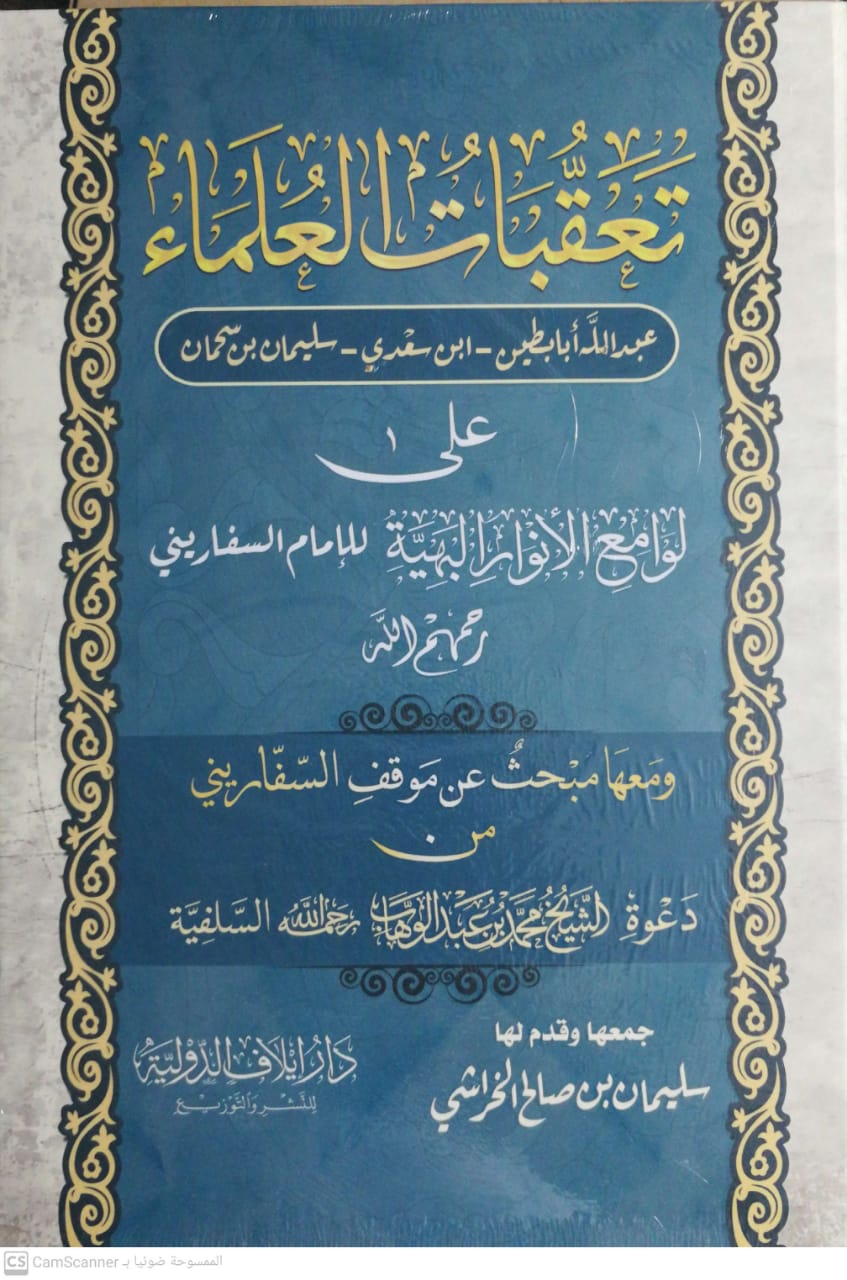 تَعَقُّبَاتُ العُلَمَاءِ
عبد اللَّه أبابطين - ابن سعدي - سليمان بن سحمان
على
لَوَامِعِ الأَنْوَارِ البَهِيَّةِ للإمام السفاريني
رحمهم اللَّه
ومَعَهَا مبْحثٌ عن مَوقفِ السّفّاريني
من
دَعْوَةِ الشَّيْخِ مُحَمَّدِ بْنِ عَبْدِ الْوَهَّابِ رَحِمَهُ اللَّهُ السَّلَفِيَّة
جمعها وقدم لها
سليمان بن صالح الخراشي
دَارُ إيلَاف الدَّوْليَّة
للنَّشْرِ وَالتَّوْزِيع
CS CamScanner الممسوحة ضوئيا بـ